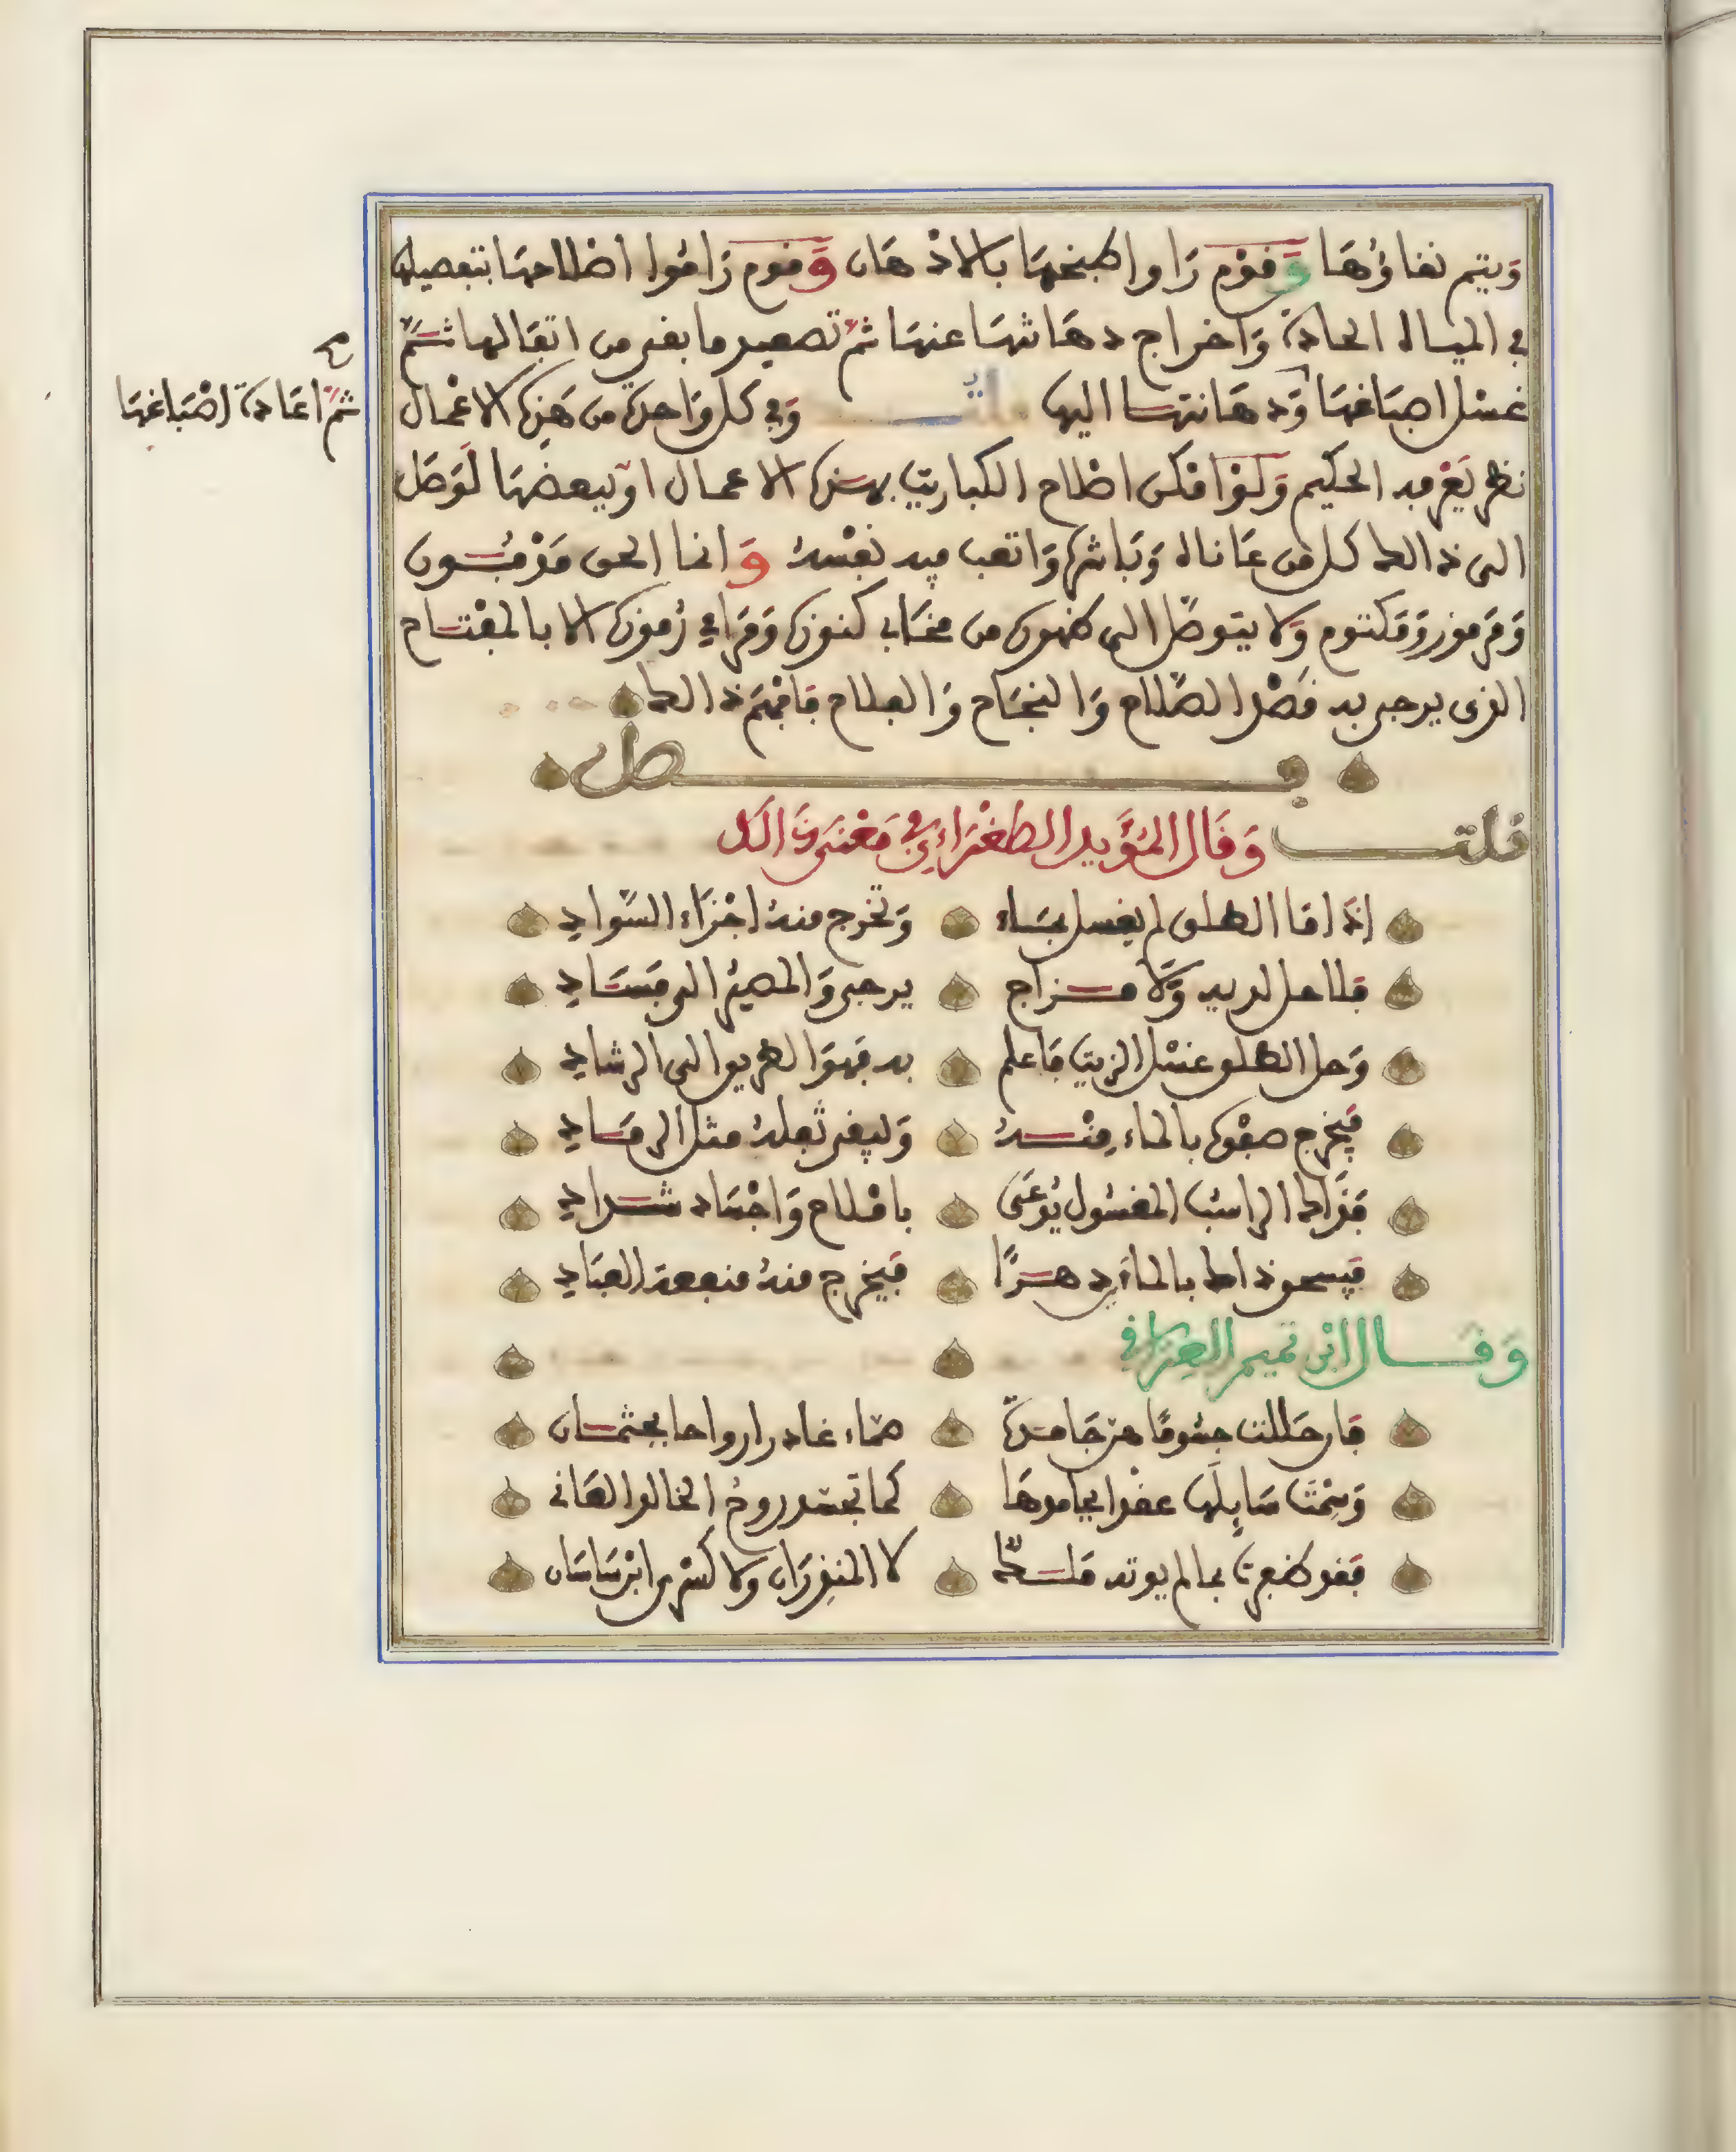 وَيتم نقاؤُهَا وَقوْم رَاوا طبخهَا بالادْهَان وَقوم رَامُوا اصْلاحهَا بتفصيلها
في المياه الحادة وَاخراج دهَانتهَا عنهَا ثمّ تصعيد ما بقي من اثقالها ثمَّ
غسْل اصبَاغهَا وَدهَانتها اليها وَفي كل وَاحدة من هَذه الاعْمال
ثمّ اعَادة اصْبَاغهَا
نظر يَعْرفه الحكيم وَلوْ امْكن اصْلاح الكباريت بهذه الاعمال اوْ ببعضهَا لَوَصَل
الى ذالك كل من عَاناه وَبَاشره وَاتعب فيه نفْسهُ وَانما الحق مَدْفُون
وَمَرموز وَمَكتوم وَلا يتوصّل الى ظهوره من مخَابي كنوزه وَمَرَامي رُموزه الا بالمفْتاح
الذي يرجى به فَصْل الصّلاح وَالنجَاح وَالفلاح فافْهَم ذالك
فصل
قلت وَقَال المُؤَيد الطغْرَاءِي في مَعْنى ذَالك
اذَا مَا الطلق لم يغسل بمَاء وَتخرج منهُ اجْزَاء السَّوادِ
فلا حل لديه وَلا مزاج يرجى وَالمصيرُ الى فسَادِ
وَحل الطلق غسْل الزيت فاعلم به فهوَ الطريق الى الرشادِ
فيَخرج صفْوه بالماء منْهُ وَليبقى ثفلهُ مثل الرمَادِ
فذَاك الراسبُ المغسُول يُدْعَى باملاح وَاجْسَاد شدادِ
فيسحق ذاك بالمَاءَين دهرًا فيَخرج منهُ منفعة العبَادِ
وَقال ابْن تميم العِراقي
فان حَللت جسُومًا هن جَامدة بماء غادر ارواحا بجثمان
وَسِمْتَ سَايِلَها عقْدا بجامدها كما تجسّد روحُ الخالد الفَاني
فقد ظفرت بما لم يوته مَلك لا المنذِرَان ولا كسْرى ابْن سَاسَان